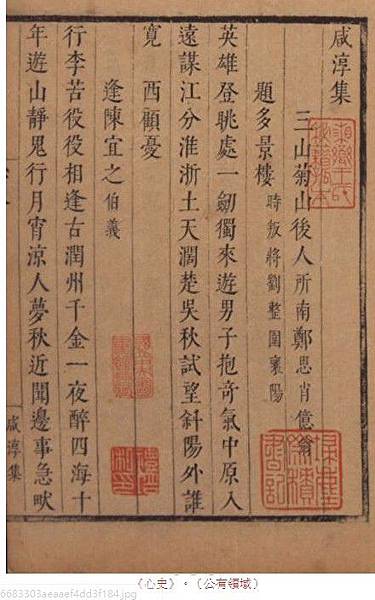 咸淳集
三山菊山後人所南鄭思肖億翁
題多景樓 時叛將劉整圍襄陽
英雄登眺處一劒獨來遊男子抱奇氣中原入
遠謀江分淮浙土天濶楚吳秋試望斜陽外誰
寬西顧憂
逢陳宜之 伯義
行李苦役役相逢古潤州千金一夜醉四海十
年遊山靜鬼行月宵涼人夢秋近聞邊事急畎
咸淳集
《心史》。（公有領域）
6683303aeaaef4dd3f184.jpg